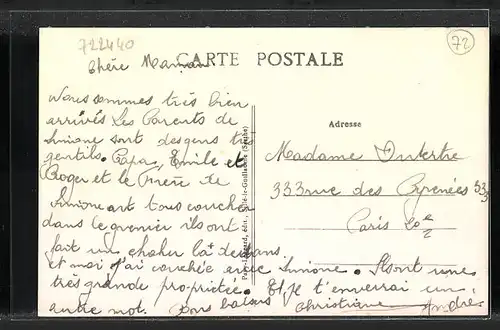 722440
72
CARTE POSTALE
Chère Maman
Nous sommes très bien
arrivés Les Parents de
Simone sont des gens très
gentils. Papa, Emile et
Roger et le Frère de
Simone ont tous coucher
dans le grenier ils ont
fait un chahu là dedans
et moi j'ai couchée avec Simone. Ils ont une
très grande propriétée. Et je t'enverrai un
autre mot. Bons baisers
Christiane André
Adresse
Madame Dutertre
333 rue des Pyrenées 333
Paris 20e